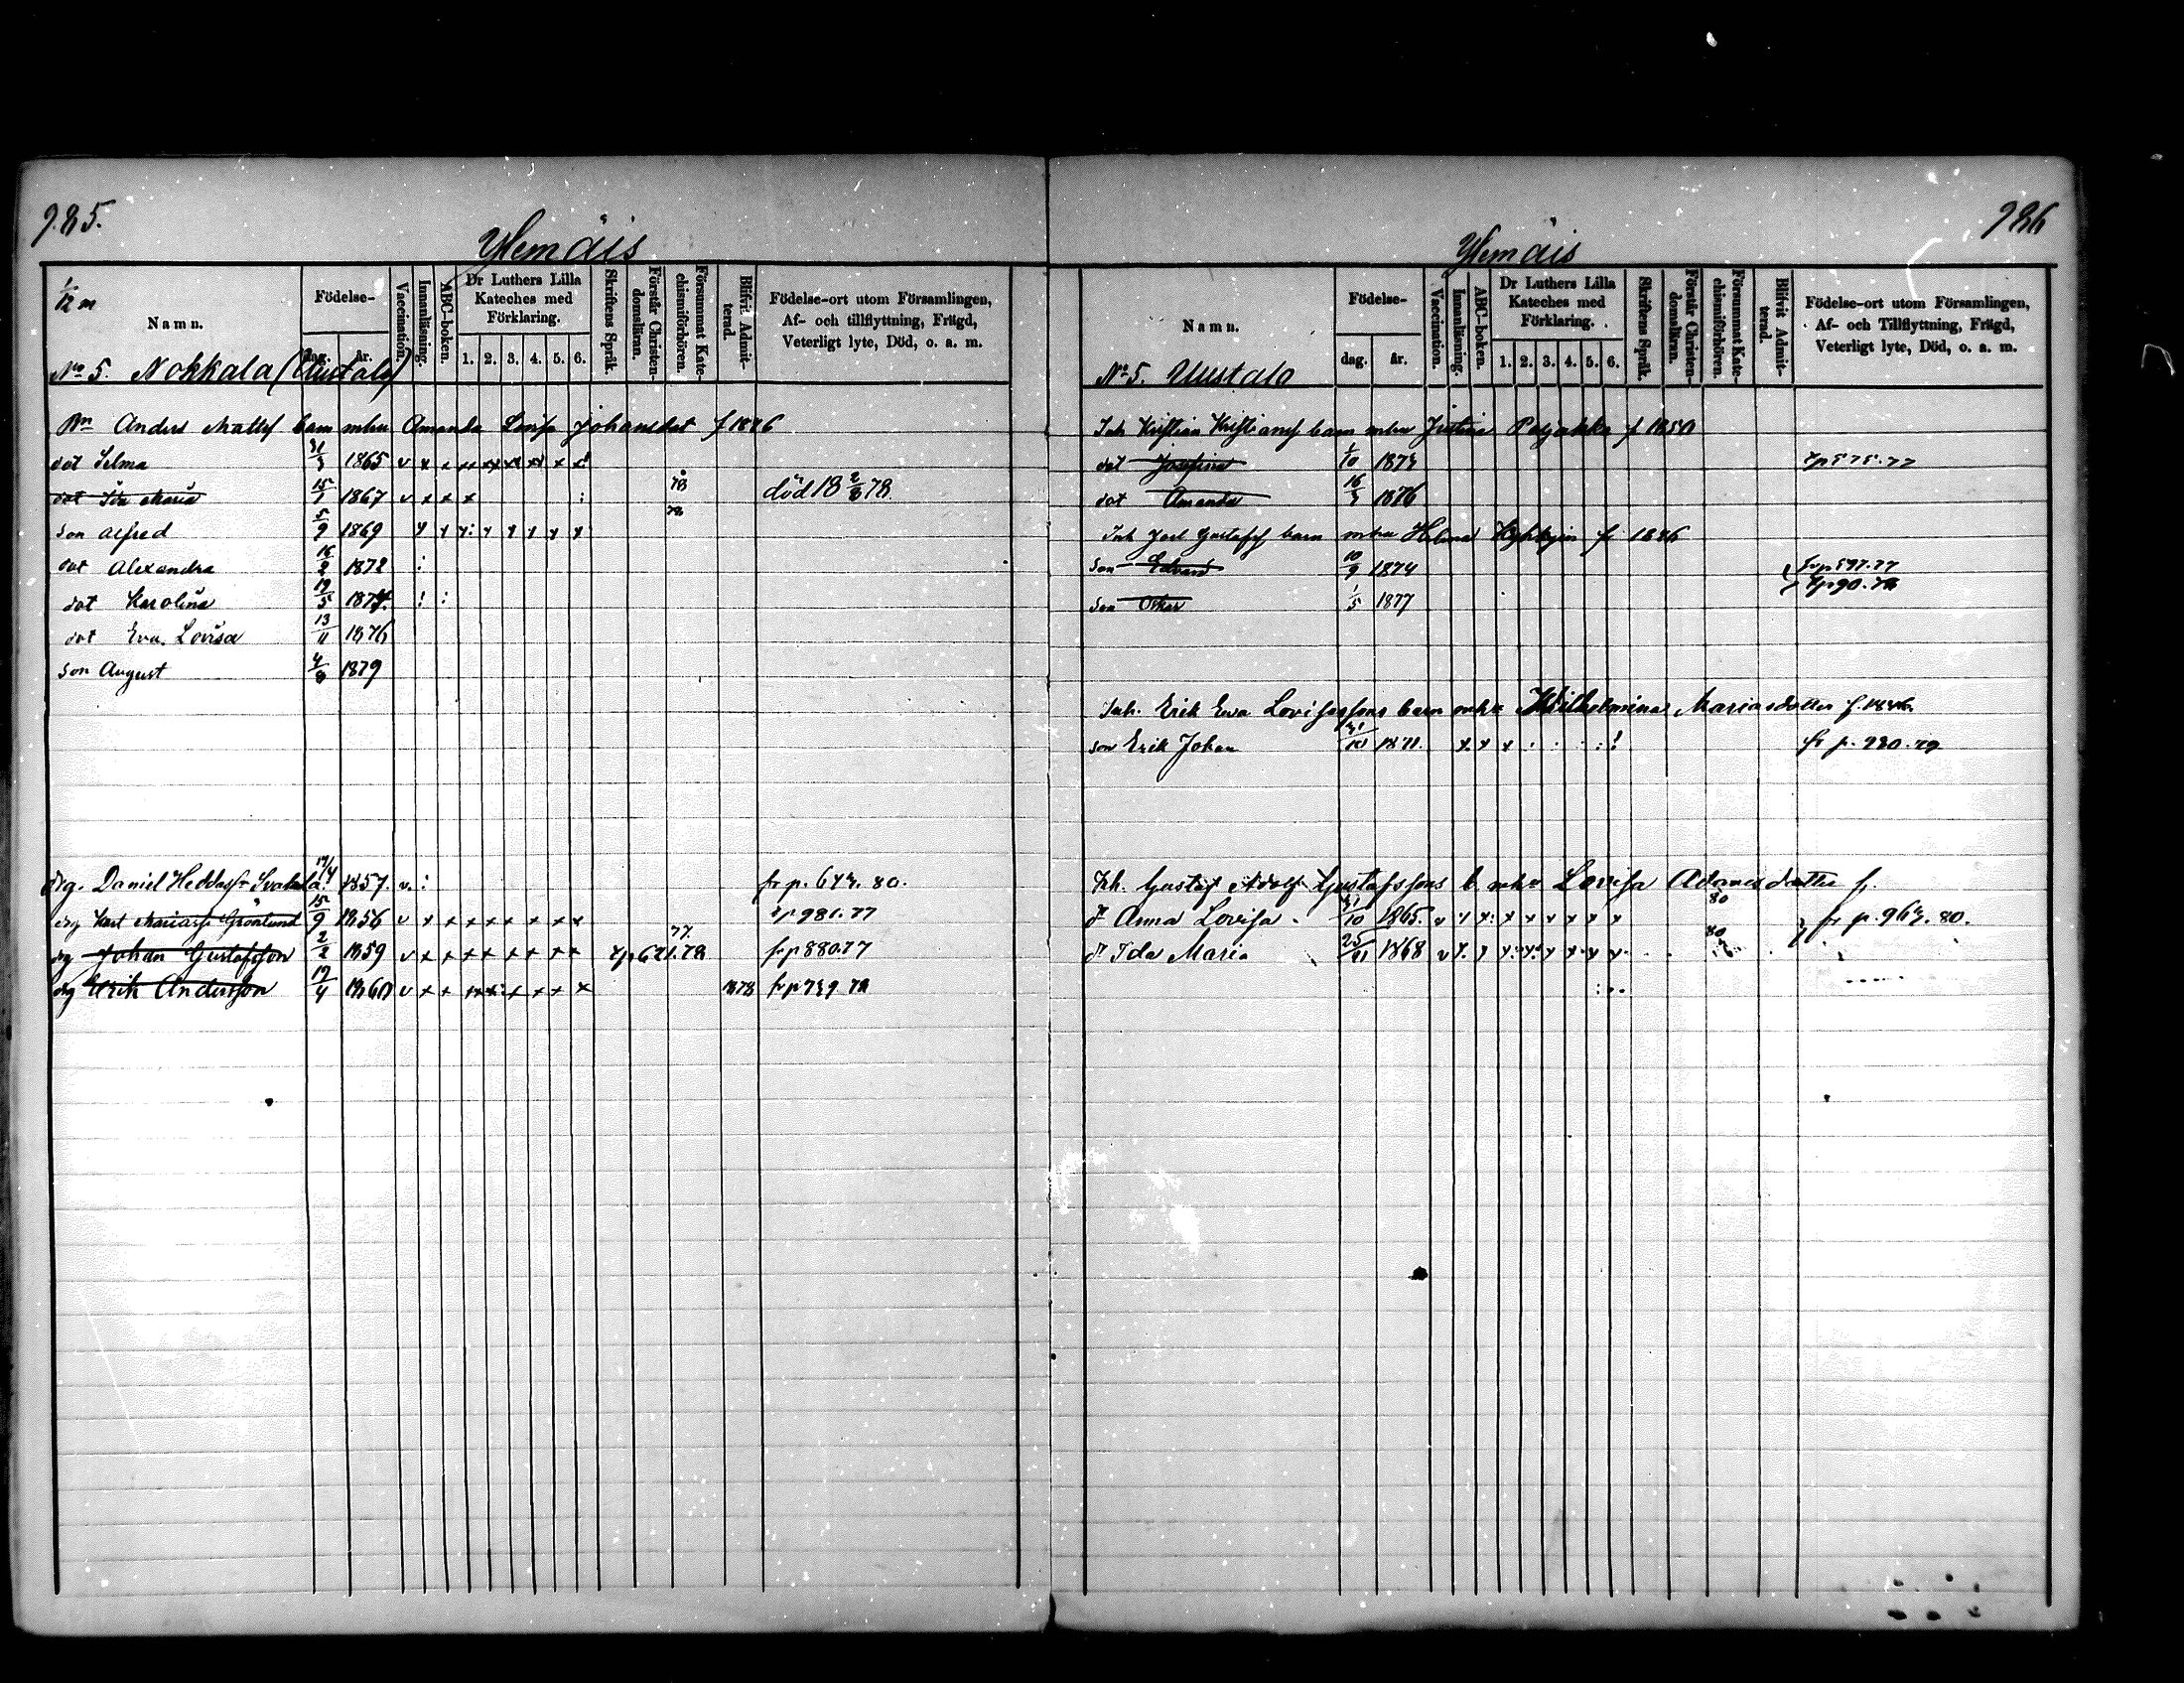 985.
Ylemäis
1/12 m
Namn.
Födelse-
dag.
år.
Vaccination.
Innanläsning.
ABC-boken.
Dr Luthers Lilla Kateches med Förklaring.
1. 2. 3. 4. 5. 6.
Skriftens Språk.
Förstår Christen-domsläran.
Försummat Kate-chismiförhören.
Blifvit Admit-terad.
Födelse-ort utom Församlingen, Af- och tillflyttning, Frägd, Veterligt lyte, Död, o. a. m.
No 5. Nokkala (Uustalo)
Bn Anders Mattsf barn mhu Amanda Lovisa Johansdot f 1846
dot Selma 31/3 1865 v x x x x x x x x
dot Ida Maria 15/1 1867 v x x x : 78 död 18 2/8 78
son Alfred 5/9 1869 x x x: x x x x x 78
dot Alexandra 16/2 1872 :
dot Karolina 19/5 1874. : :
dot Eva Lovisa 13/11 1876
son August 4/8 1879
drg. Daniel Heddasse Svakala 1857. v. : fr p. 643. 80.
drg Karl Mariasse Grönlund 15/9 1856 v x x x x x x x x t p 981.77
drg Johan Gustafsson 2/2 1859 v x x x x x x x x t p 621.78 77. fr p 880.77
drg Erik Andersson 19/4 1860 v x x x x: x x x x 1878 fr p 739 78
986
Ylemäis
Namn.
Födelse-
dag.
år.
Vaccination.
Innanläsning.
ABC-boken.
Dr Luthers Lilla Kateches med Förklaring.
1. 2. 3. 4. 5. 6.
Skriftens Språk.
Förstår Christen-domsläran.
Försummat Kate-chismiförhören.
Blifvit Admit-terad.
Födelse-ort utom Församlingen, Af- och Tillflyttning, Frägd, Veterligt lyte, Död, o. a. m.
No 5. Uustalo
Inh Kristian Kristiansf barn mhu Justina f 1850
dot Josefina 1/10 1873 t p 575.77
dot Amanda 16/3 1876
Inh Joel Gustafsf barn mhu Helena f 1846
son Edvard 10/9 1874 fr p 597.77
son Oskar 1/5 1877 t p 90.78
Inh. Erik Eva Lovisassons barn mhu Wilhelmina Mariasdotter f. 1846.
son Erik Johan 31/10 1871. x. x x . : . : ! fr p. 920.79
Inh. Gustaf Adolf Gustafssons b mhu Lovisa Adamsdotter f.
d Anna Lovisa 31/10 1865. v x x: x x x x x x 80
d Ida Maria 25/11 1868 v x. x x: x: x x x x 80 fr p. 963. 80.